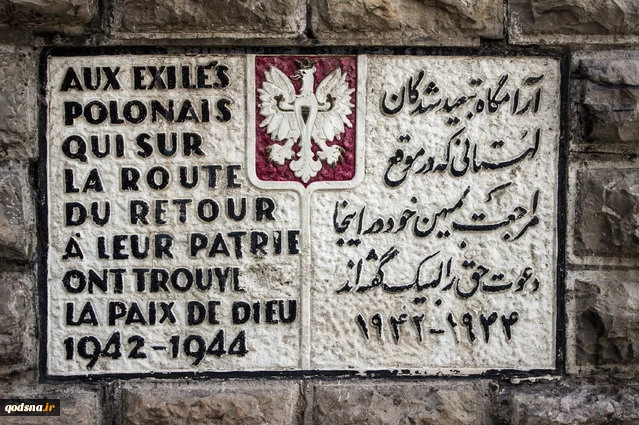 AUX EXILÉS
POLONAIS
QUI SUR
LA ROUTE
DU RETOUR
À LEUR PATRIE
ONT TROUVÉ
LA PAIX DE DIEU
1942-1944
آرامگاه تبعید شدگان
لهستانی که در موقع
مراجعت بمیهن خود در اینجا
دعوت حق را لبیک گفته‌اند
۱۹۴۲-۱۹۴۴
qodsna.ir